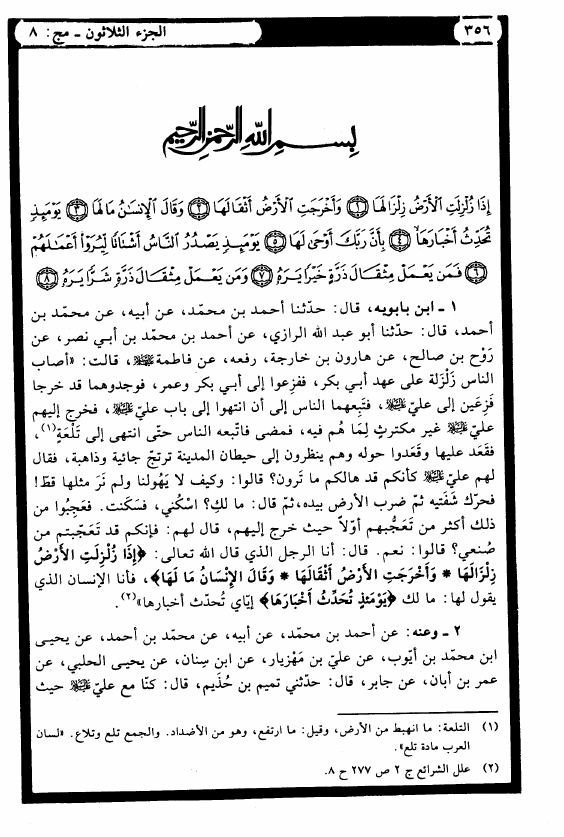 ٣٥٦
الجزء الثلاثون ـ مج: ٨
بِسْمِ اللهِ الرَّحْمنِ الرَّحِيمِ
إِذَا زُلْزِلَتِ ٱلْأَرْضُ زِلْزَالَهَا ﴿١﴾ وَأَخْرَجَتِ ٱلْأَرْضُ أَثْقَالَهَا ﴿٢﴾ وَقَالَ ٱلْإِنسَٰنُ مَا لَهَا ﴿٣﴾ يَوْمَئِذٍ
تُحَدِّثُ أَخْبَارَهَا ﴿٤﴾ بِأَنَّ رَبَّكَ أَوْحَىٰ لَهَا ﴿٥﴾ يَوْمَئِذٍ يَصْدُرُ ٱلنَّاسُ أَشْتَاتًا لِّيُرَوْا۟ أَعْمَٰلَهُمْ
﴿٦﴾ فَمَن يَعْمَلْ مِثْقَالَ ذَرَّةٍ خَيْرًا يَرَهُ ﴿٧﴾ وَمَن يَعْمَلْ مِثْقَالَ ذَرَّةٍ شَرًّا يَرَهُ ﴿٨﴾
١ ـ ابن بابويه، قال: حدّثنا أحمد بن محمّد، عن أبيه، عن محمّد بن
أحمد، قال: حدّثنا أبو عبد الله الرازي، عن أحمد بن محمّد بن أبي نصر، عن
رَوْح بن صالح، عن هارون بن خارجة، رفعه، عن فاطمة ﷺ، قالت: «أصاب
الناس زَلْزَلة على عهد أبي بكر، ففزِعوا إلى أبي بكر وعمر، فوجدوهما قد خرجا
فزِعَين إلى عليّ ﷺ، فتَبعهما الناس إلى أن انتهوا إلى باب عليّ ﷺ، فخرج إليهم
عليّ ﷺ غير مكترثٍ لِمَا هُم فيه، فمضى فاتّبعه الناس حتّى انتهى إلى تَلْعَةٍ(١)،
فقَعَد عليها وقَعَدوا حوله وهم ينظرون إلى حيطان المدينة ترتجّ جائية وذاهبة، فقال
لهم عليّ ﷺ كأنكم قد هالكم ما تَرون؟ قالوا: وكيف لا يَهُولنا ولم نَرَ مثلها قطّ!
فحرّك شَفَتيه ثمّ ضرب الأرض بيده، ثمّ قال: ما لكِ؟ اسْكُني، فسَكنت. فعَجِبُوا من
ذلك أكثر من تَعَجُّبهم أوّلاً حيث خرج إليهم، قال لهم: فإنكم قد تَعَجّبتم من
صُنعي؟ قالوا: نعم. قال: أنا الرجل الذي قال الله تعالى: ﴿إِذَا زُلْزِلَتِ الأَرْضُ
زِلْزَالَهَا * وَأَخْرَجَتِ الأَرْضُ أَثْقَالَهَا * وَقَالَ الإِنْسَانُ مَا لَهَا﴾، فأنا الإنسان الذي
يقول لها: ما لك ﴿يَوْمَئِذٍ تُحَدِّثُ أَخْبَارَهَا﴾ إيّاي تُحدّث أخبارها»(٢).
٢ ـ وعنه: عن أحمد بن محمّد، عن أبيه، عن محمّد بن أحمد، عن يحيى
ابن محمّد بن أيّوب، عن عليّ بن مَهْزيار، عن ابن سِنان، عن يحيى الحلبي، عن
عمر بن أبان، عن جابر، قال: حدّثني تميم بن حُذَيم، قال: كنّا مع عليّ ﷺ حيث
(١) التلعة: ما انهبط من الأرض، وقيل: ما ارتفع، وهو من الأضداد. والجمع تلع وتلاع. «لسان
العرب مادة تلع».
(٢) علل الشرائع ج ٢ ص ٢٧٧ ح ٨.